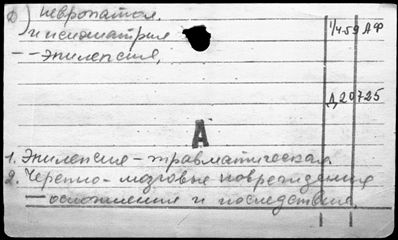 д) невропатол.
и психиатрия
-- эпилепсия,
1/4-59 АФ
Д,20725
А
1. Эпилепсия - травматическая.
2. Черепно-мозговые повреждения
— осложнения и последствия.